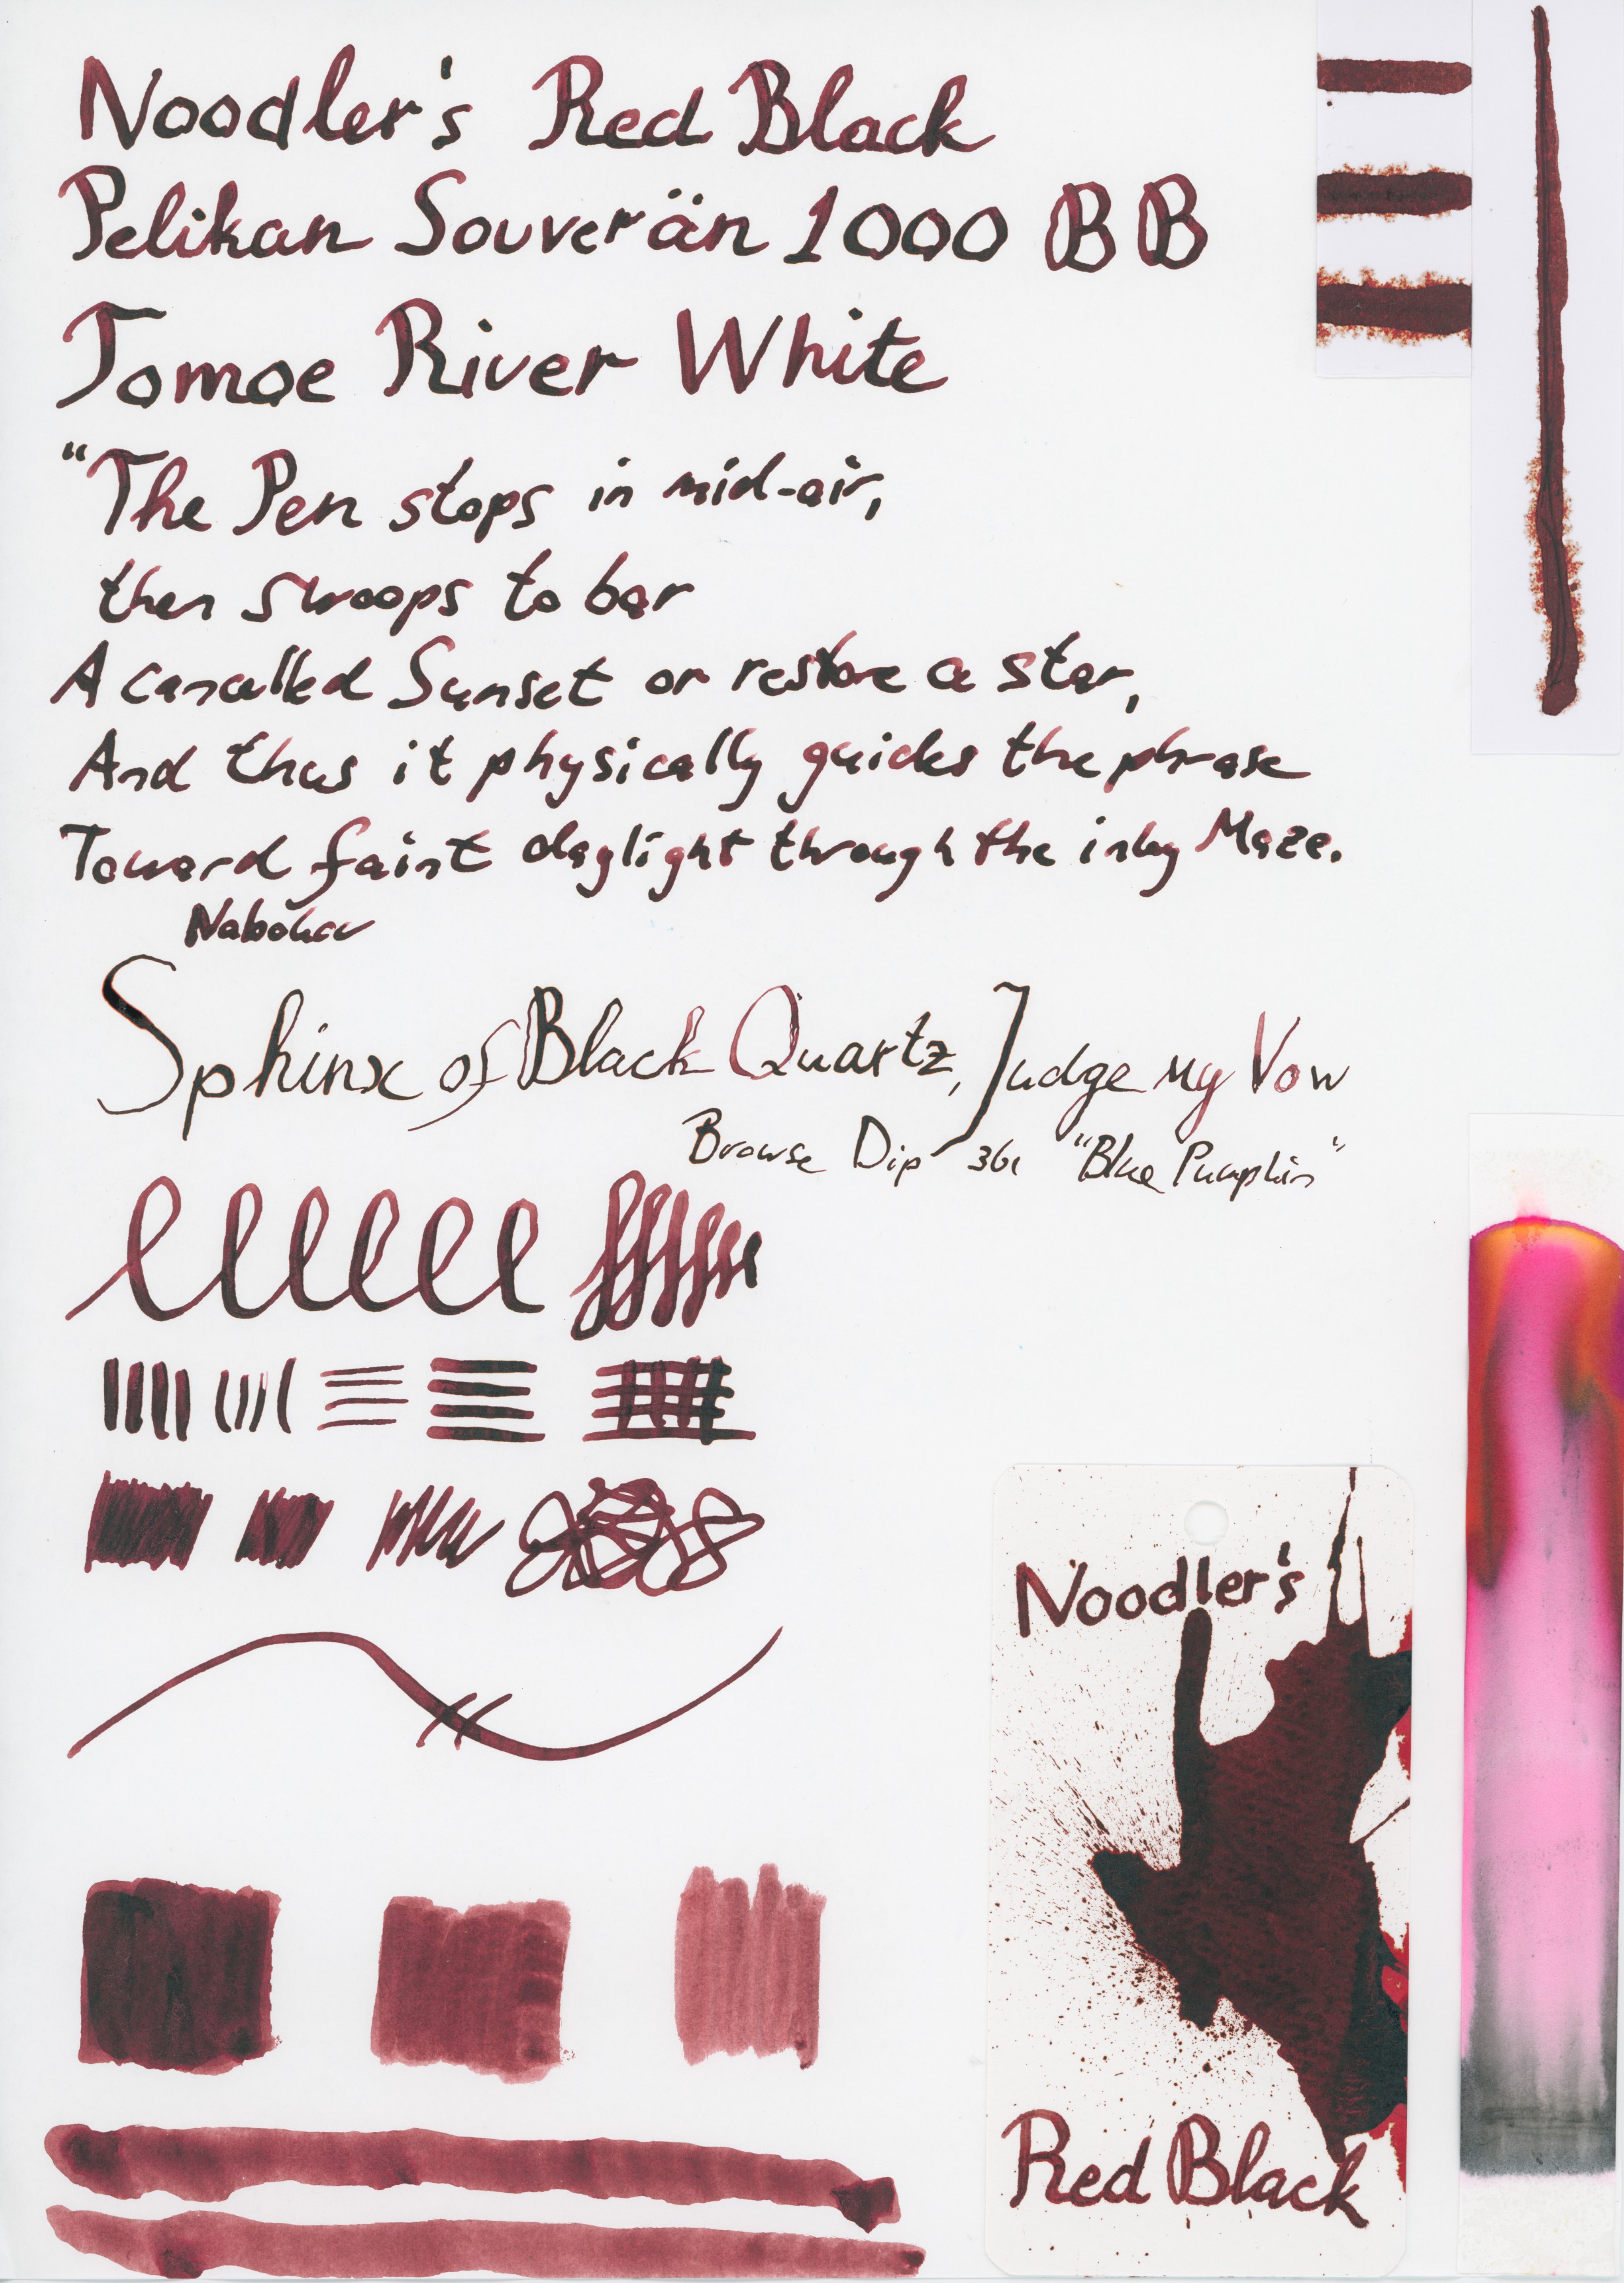 Noodler's Red Black
Pelikan Souverän 1000 BB
Tomoe River White
"The Pen stops in mid-air,
then swoops to bar
A cancelled Sunset or restore a star,
And thus it physically guides the phrase
Toward faint daylight through the inky Maze.
Nabokov
Sphinx of Black Quartz, Judge my Vow
Browse Dip 361 "Blue Pumpkin"
Noodler's
Red Black